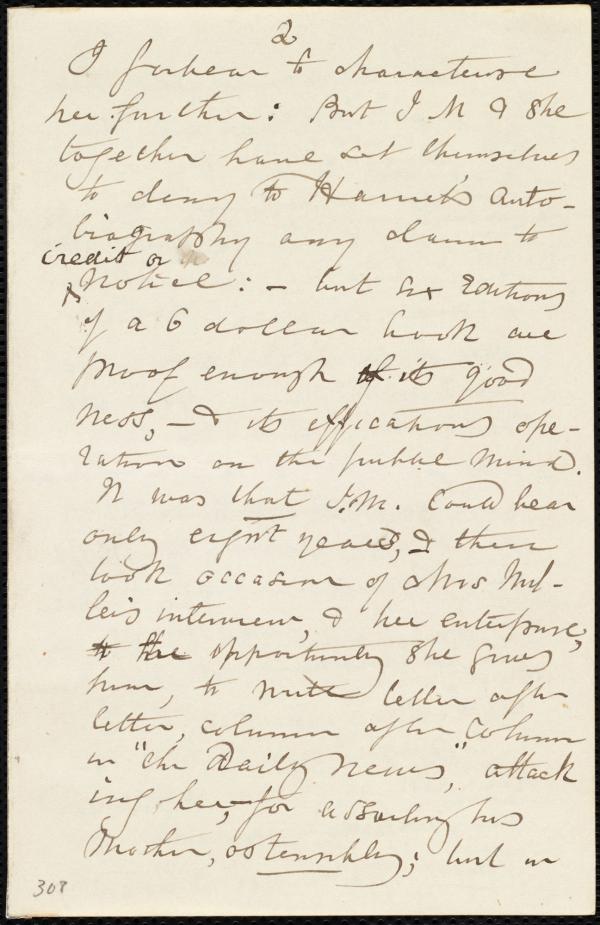 2
I forbear to characterise
her further: But J M & she
together have set themselves
to deny to Harriet's Auto-
biography any claim to
credit or
notice: - but six Editions
of a 6 dollar book are
proof enough of its good
ness, - & its efficacious ope-
ration on the public mind.
It was that J.M. could bear
only eight years, & then
took occasion of Mrs Mil-
ler's interview, & her enterprise,
to the opportunity she gives
him, to write letter after
letter, column after column
in "the Daily News," attack
ing her, for assailing his
Mother, ostensibly; but in
308